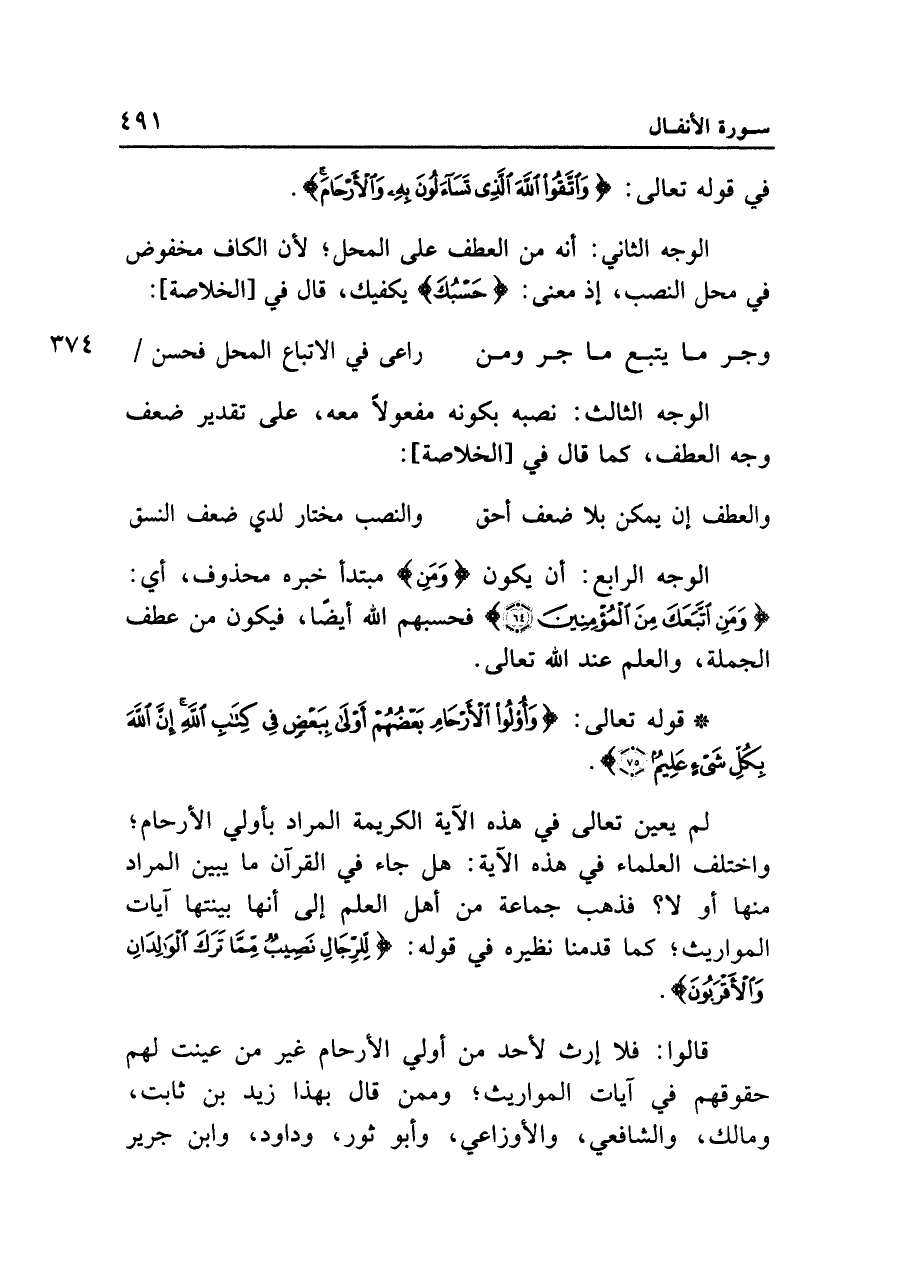 سـورة الأنفـال ٤٩١
في قوله تعالى: ﴿ وَٱتَّقُوا۟ ٱللَّهَ ٱلَّذِى تَسَآءَلُونَ بِهِۦ وَٱلْأَرْحَامَۚ﴾ .
الوجه الثاني: أنه من العطف على المحل؛ لأن الكاف مخفوض
في محل النصب، إذ معنى: ﴿ حَسْبُكَ﴾ يكفيك، قال في [الخلاصة]:
وجـر مـا يتبـع مـا جـر ومـن راعى في الاتباع المحل فحسن / ٣٧٤
الوجه الثالث: نصبه بكونه مفعولاً معه، على تقدير ضعف
وجه العطف، كما قال في [الخلاصة]:
والعطف إن يمكن بلا ضعف أحق والنصب مختار لدي ضعف النسق
الوجه الرابع: أن يكون ﴿ وَمَنِ﴾ مبتدأ خبره محذوف، أي:
﴿ وَمَنِ ٱتَّبَعَكَ مِنَ ٱلْمُؤْمِنِينَ ٦٤﴾ فحسبهم الله أيضًا، فيكون من عطف
الجملة، والعلم عند الله تعالى.
* قوله تعالى: ﴿ وَأُو۟لُوا۟ ٱلْأَرْحَامِ بَعْضُهُمْ أَوْلَىٰ بِبَعْضٍ فِى كِتَٰبِ ٱللَّهِۚ إِنَّ ٱللَّهَ
بِكُلِّ شَىْءٍ عَلِيمٌۢ ٧٥﴾ .
لم يعين تعالى في هذه الآية الكريمة المراد بأولي الأرحام؛
واختلف العلماء في هذه الآية: هل جاء في القرآن ما يبين المراد
منها أو لا؟ فذهب جماعة من أهل العلم إلى أنها بينتها آيات
المواريث؛ كما قدمنا نظيره في قوله: ﴿ لِّلرِّجَالِ نَصِيبٌ مِّمَّا تَرَكَ ٱلْوَٰلِدَانِ
وَٱلْأَقْرَبُونَ﴾ .
قالوا: فلا إرث لأحد من أولي الأرحام غير من عينت لهم
حقوقهم في آيات المواريث؛ وممن قال بهذا زيد بن ثابت،
ومالك، والشافعي، والأوزاعي، وأبو ثور، وداود، وابن جرير